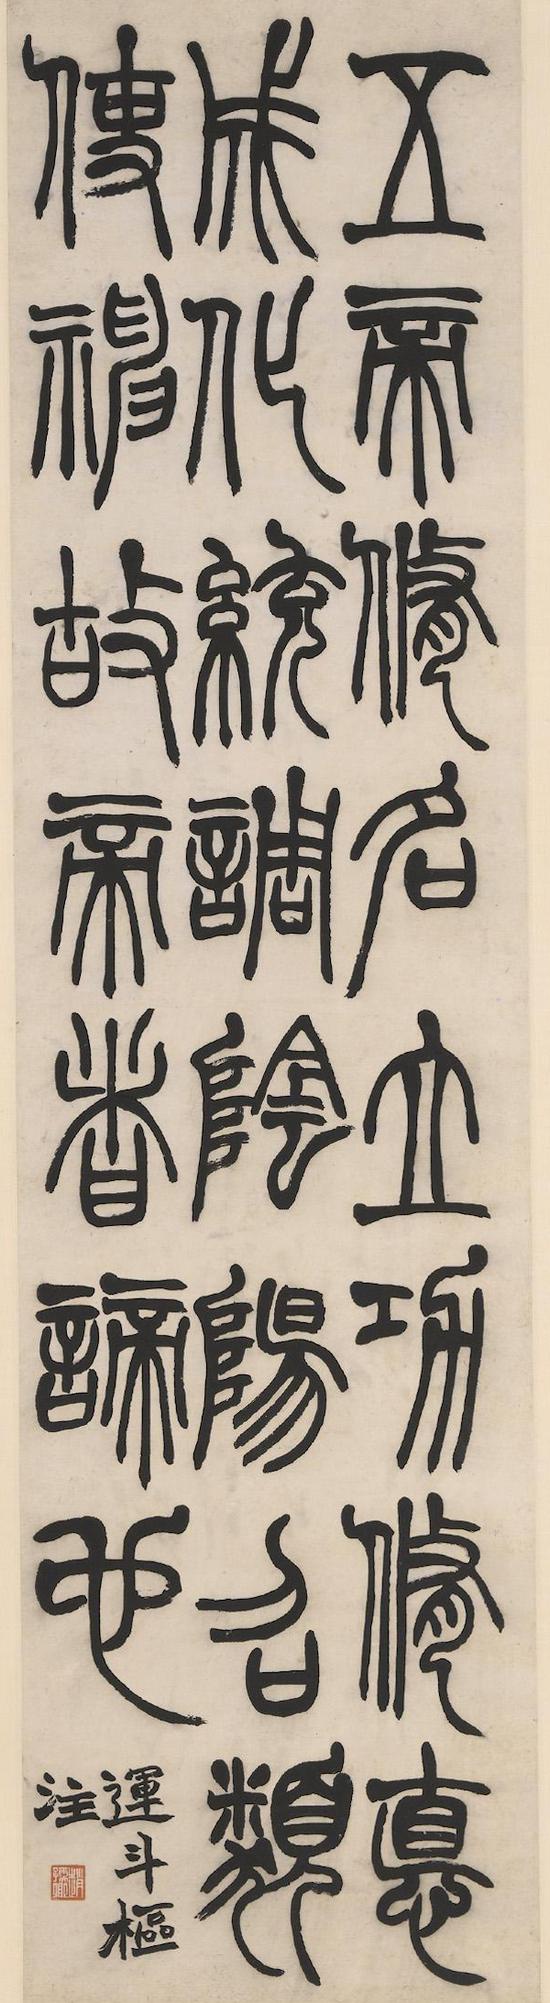 五帝修名立功修悳
成化統調陰陽召類
使神故帝者諦也
運斗樞
注